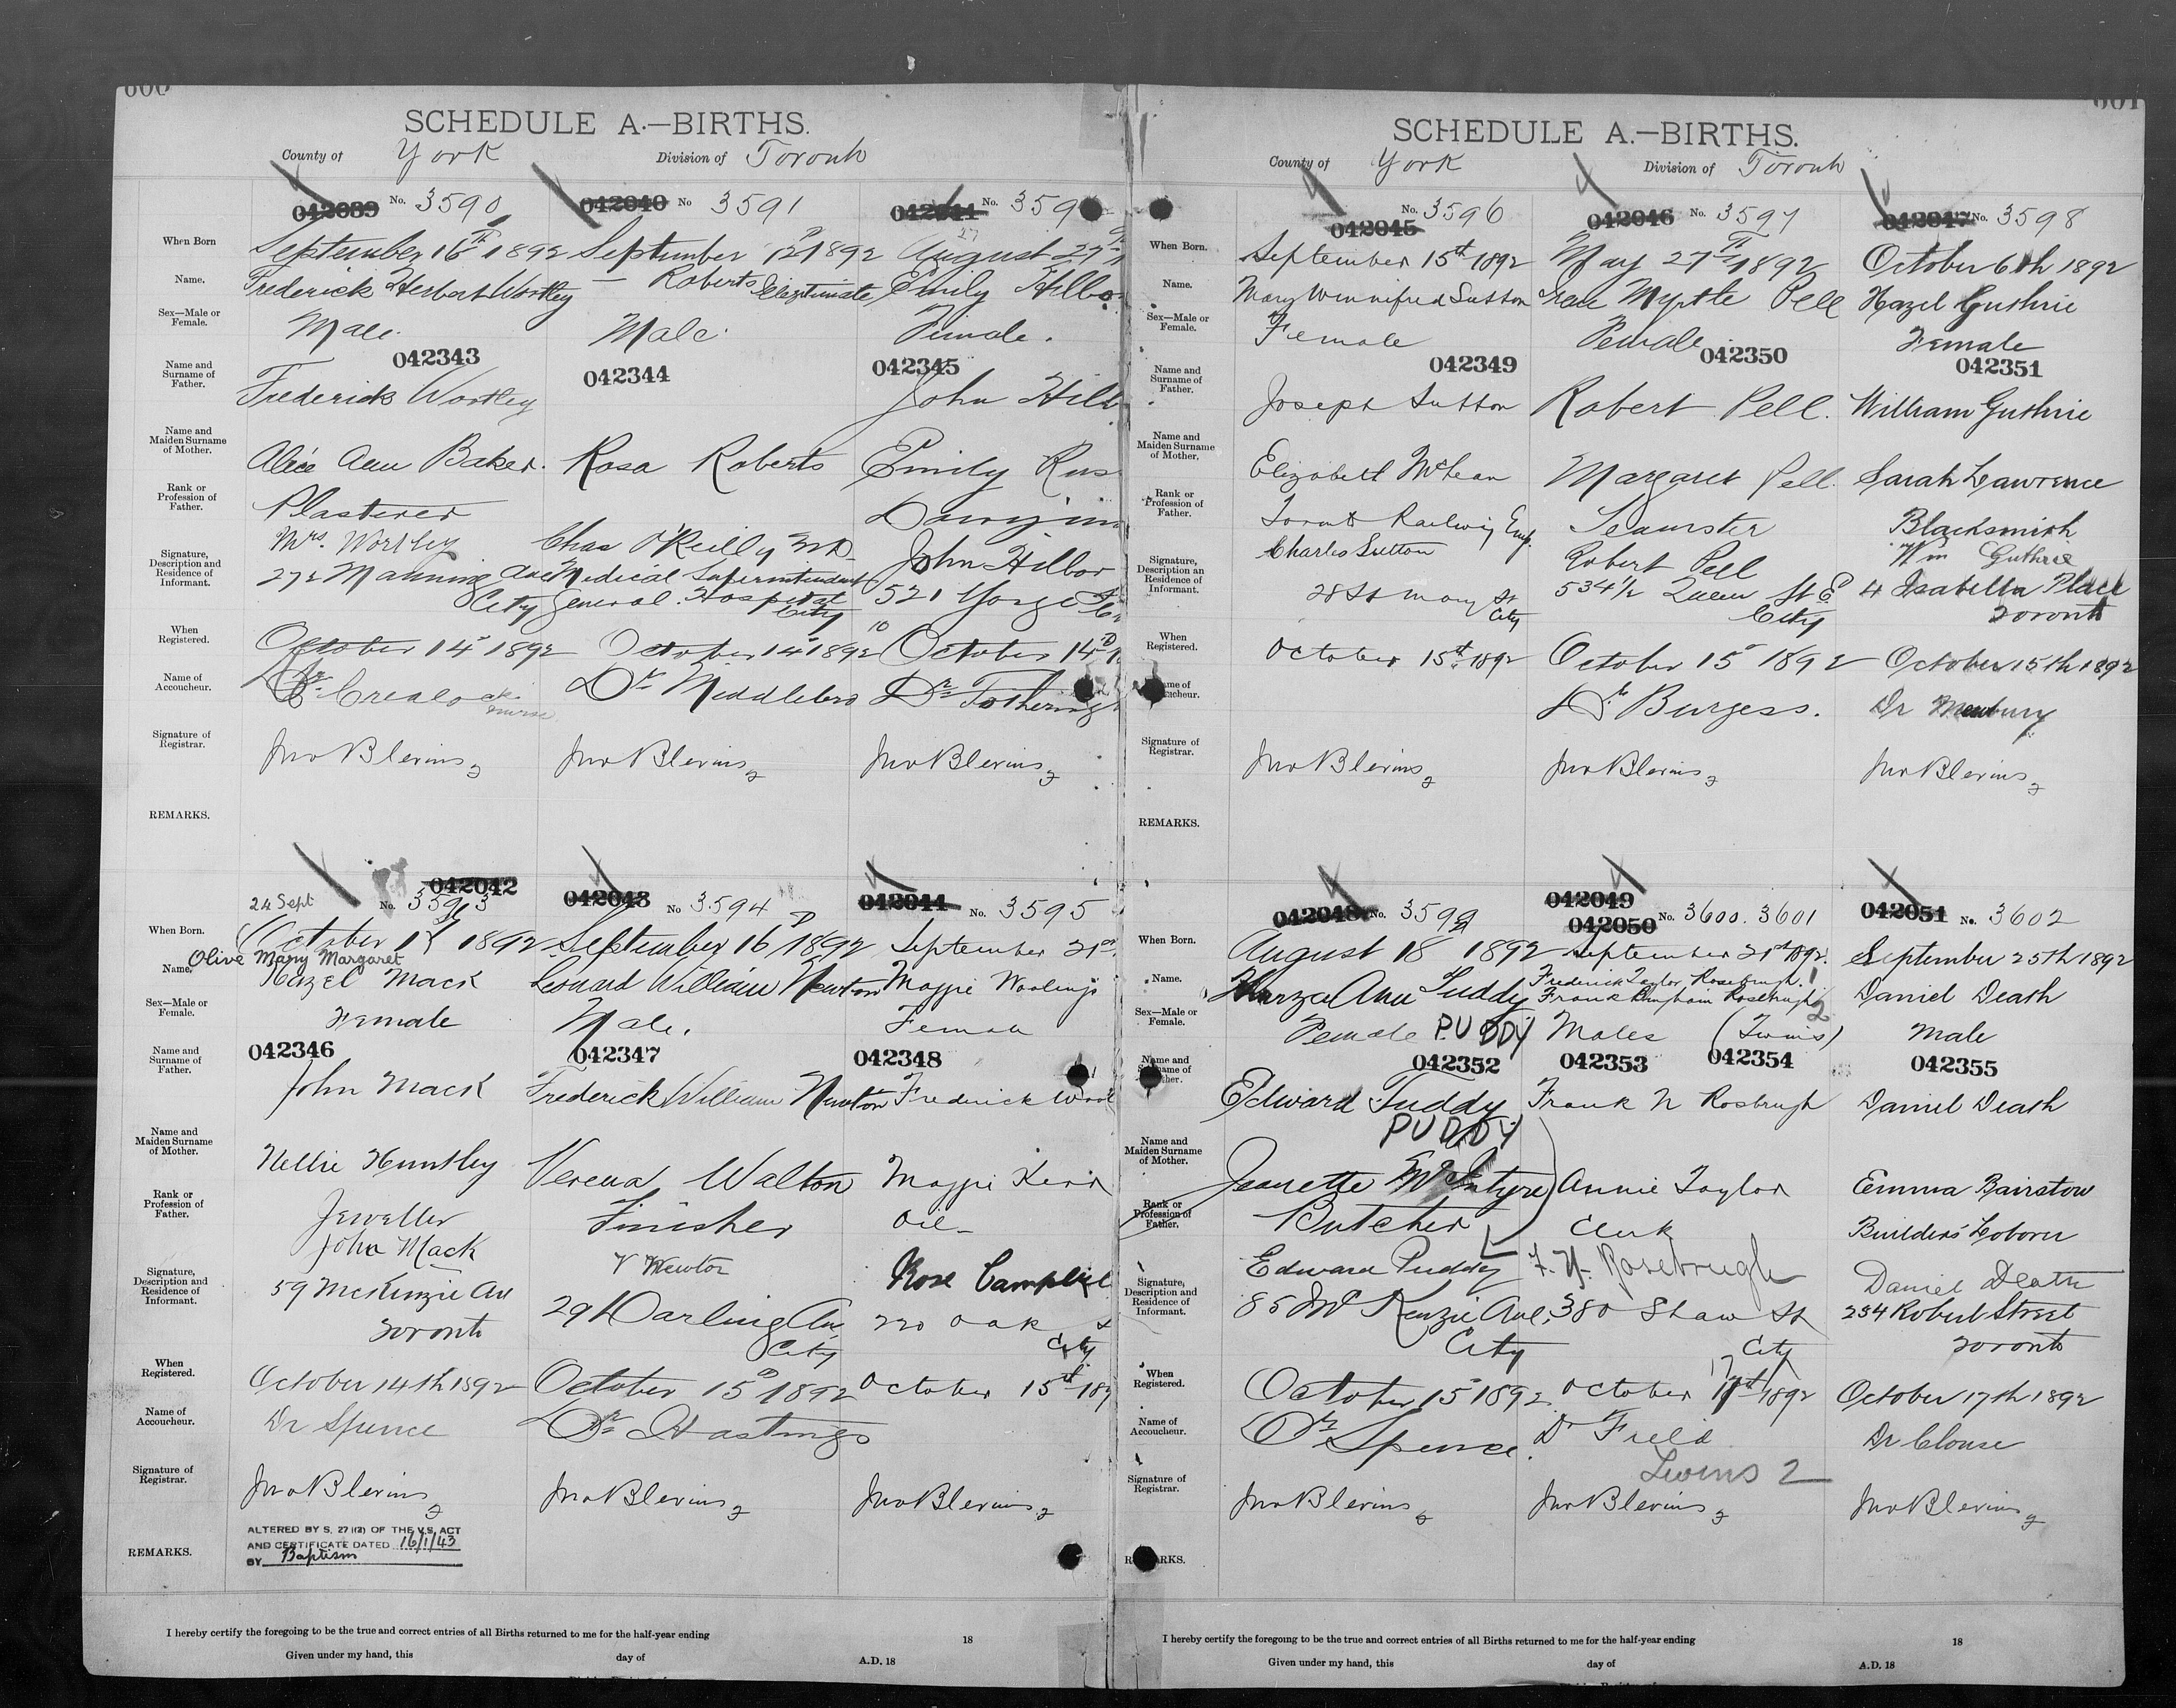 600
SCHEDULE A.—BIRTHS.
County of York Division of Toronto
042039 No. 3590 042040 No 3591 042041 No. 359
When Born September 16th 1892 September 12th 1892 August 27th
Name. Frederick Herbert Wortley — Roberts Illegitimate Emily Hilbo
Sex—Male or Female. Male Male Female.
042343 042344 042345
Name and Surname of Father. Frederick Wortley John Hilb
Name and Maiden Surname of Mother. Alice Ann Baker. Rosa Roberts Emily Rus
Rank or Profession of Father. Plasterer Dairyim
Signature, Description and Residence of Informant. Mrs. Wortley Chas O'Reilly MD John Hilbor
272 Manning Ave Medical Superintendent 521 Yonge St
City General Hospital City
When Registered. October 14th 1892 October 14th 1892 October 14th
Name of Accoucheur. Crealock nurse Dr Middlebro Dr Fothering
Signature of Registrar. Jno Blevins Jno Blevins Jno Blevins
REMARKS.
24 Sept
042042 No. 3593 042043 No 3594 042044 No. 3595
When Born. October 1892 September 16th 1892 September 21st
Olive Mary Margaret
Name. Hazel Mack Leonard William Newton Maggie Woolings
Sex—Male or Female. Female Male. Female
042346 042347 042348
Name and Surname of Father. John Mack Frederick William Newton Frederick Wool
Name and Maiden Surname of Mother. Nellie Huntley Verena Walton Maggie Kerr
Rank or Profession of Father. Jeweller Finisher Oil
Signature, Description and Residence of Informant. John Mack V Newton Rose Campbell
59 McKenzie Av 29 Darling Av 220 Oak St
Toronto City City
When Registered. October 14th 1892 October 15th 1892 October 15th 189
Name of Accoucheur. Dr Spence Dr Hastings
Signature of Registrar. Jno Blevins Jno Blevins Jno Blevins
REMARKS.
ALTERED BY S. 27 (2) OF THE V.S. ACT
AND CERTIFICATE DATED 16/1/43
BY Baptism
I hereby certify the foregoing to be the true and correct entries of all Births returned to me for the half-year ending 18
Given under my hand, this day of A.D. 18
601
SCHEDULE A.—BIRTHS.
County of York Division of Toronto
No. 3596 042046 No. 3597 042047 No. 3598
042045
When Born. September 15th 1892 May 27th 1892 October 6th 1892
Name. Mary Winnifred Sutton Myrtle Pell Hazel Guthrie
Sex—Male or Female. Female Female Female
042349 042350 042351
Name and Surname of Father. Joseph Sutton Robert Pell. William Guthrie
Name and Maiden Surname of Mother. Elizabeth McLean Margaret Pell. Sarah Lawrence
Rank or Profession of Father. Toronto Railway Emp. Teamster Blacksmith
Signature, Description an Residence of Informant. Charles Sutton Robert Pell Wm Guthrie
28 St Mary St 534 1/2 Queen St E 4 Isabella Place
City City Toronto
When Registered. October 15th 1892 October 15 1892 October 15th 1892
Name of Accoucheur. Dr Burgess. Dr Newbury
Signature of Registrar. Jno Blevins Jno Blevins Jno Blevins
REMARKS.
042048 No. 3599 042049 042050 No. 3600. 3601 042051 No. 3602
When Born. August 18 1892 September 21st 1892. September 25th 1892
Name. Ann Tuddy Frederick Taylor Rosebrugh 1 Daniel Death
Frank Bingham Rosebrugh 2
Sex—Male or Female. Female PUDDY Males (Twins) Male
042352 042353 042354 042355
Name and Surname of Father. Edward Tuddy Frank N Rosbrugh Daniel Death
PUDDY
Name and Maiden Surname of Mother. Jeanette McIntyre Annie Taylor Emma Bairstow
Rank or Profession of Father. Butcher Clerk Builders' Laborer
Signature, Description and Residence of Informant. Edward Puddy F. N. Rosebrugh Daniel Death
85 McKenzie Ave. 380 Shaw St 254 Robert Street
City City Toronto
When Registered. October 15 1892 October 17th 1892 October 17th 1892
Name of Accoucheur. Dr Spence. Dr Field Dr Clouse
Twins 2
Signature of Registrar. Jno Blevins Jno Blevins Jno Blevins
REMARKS.
I hereby certify the foregoing to be the true and correct entries of all Births returned to me for the half-year ending 18
Given under my hand, this day of A.D. 18